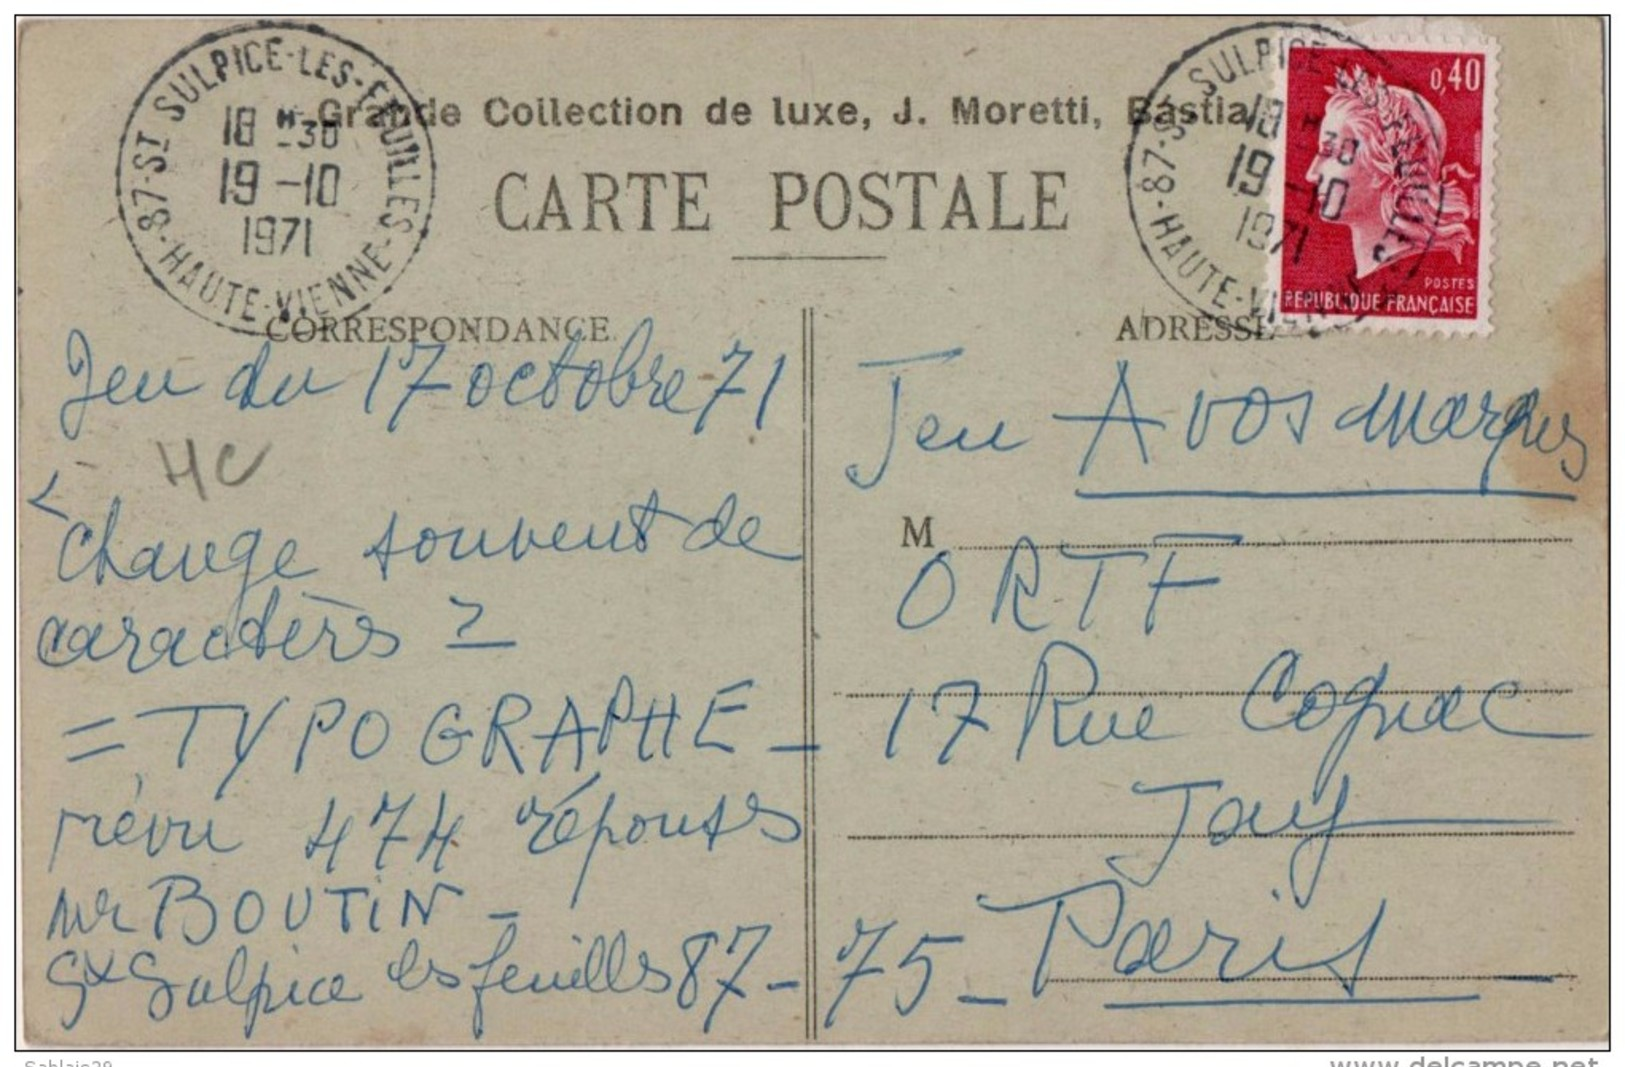 87-ST SULPICE-LES-FEUILLES
18 H -30
19 -10
1971
HAUTE-VIENNE
Grande Collection de luxe, J. Moretti, Bastia
CARTE POSTALE
87-ST SULPICE-LES-FEUILLES
18 H -30
19 -10
1971
HAUTE-VIENNE
0,40
POSTES
REPUBLIQUE FRANÇAISE
CORRESPONDANCE
Jeu du 17 octobre 71
HC
change souvent de
caractères ?
= TYPOGRAPHE -
prévu 474 réponses
mr BOUTIN -
St Sulpice les feuilles 87-
ADRESSE
Jeu A vos marques
M
ORTF
17 Rue Cognac
Jay
75 - Paris
Sablais29
www.delcampe.net